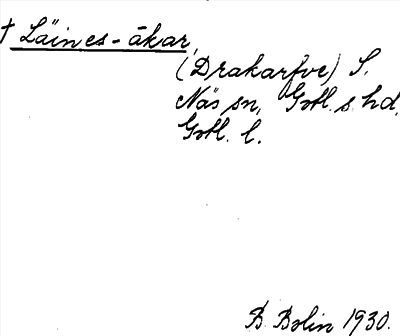 † Läines-åkar,
(Drakarfve) S.
Näs sn, Gotl. s. hd,
Gotl. l.
B. Bolin 1930.